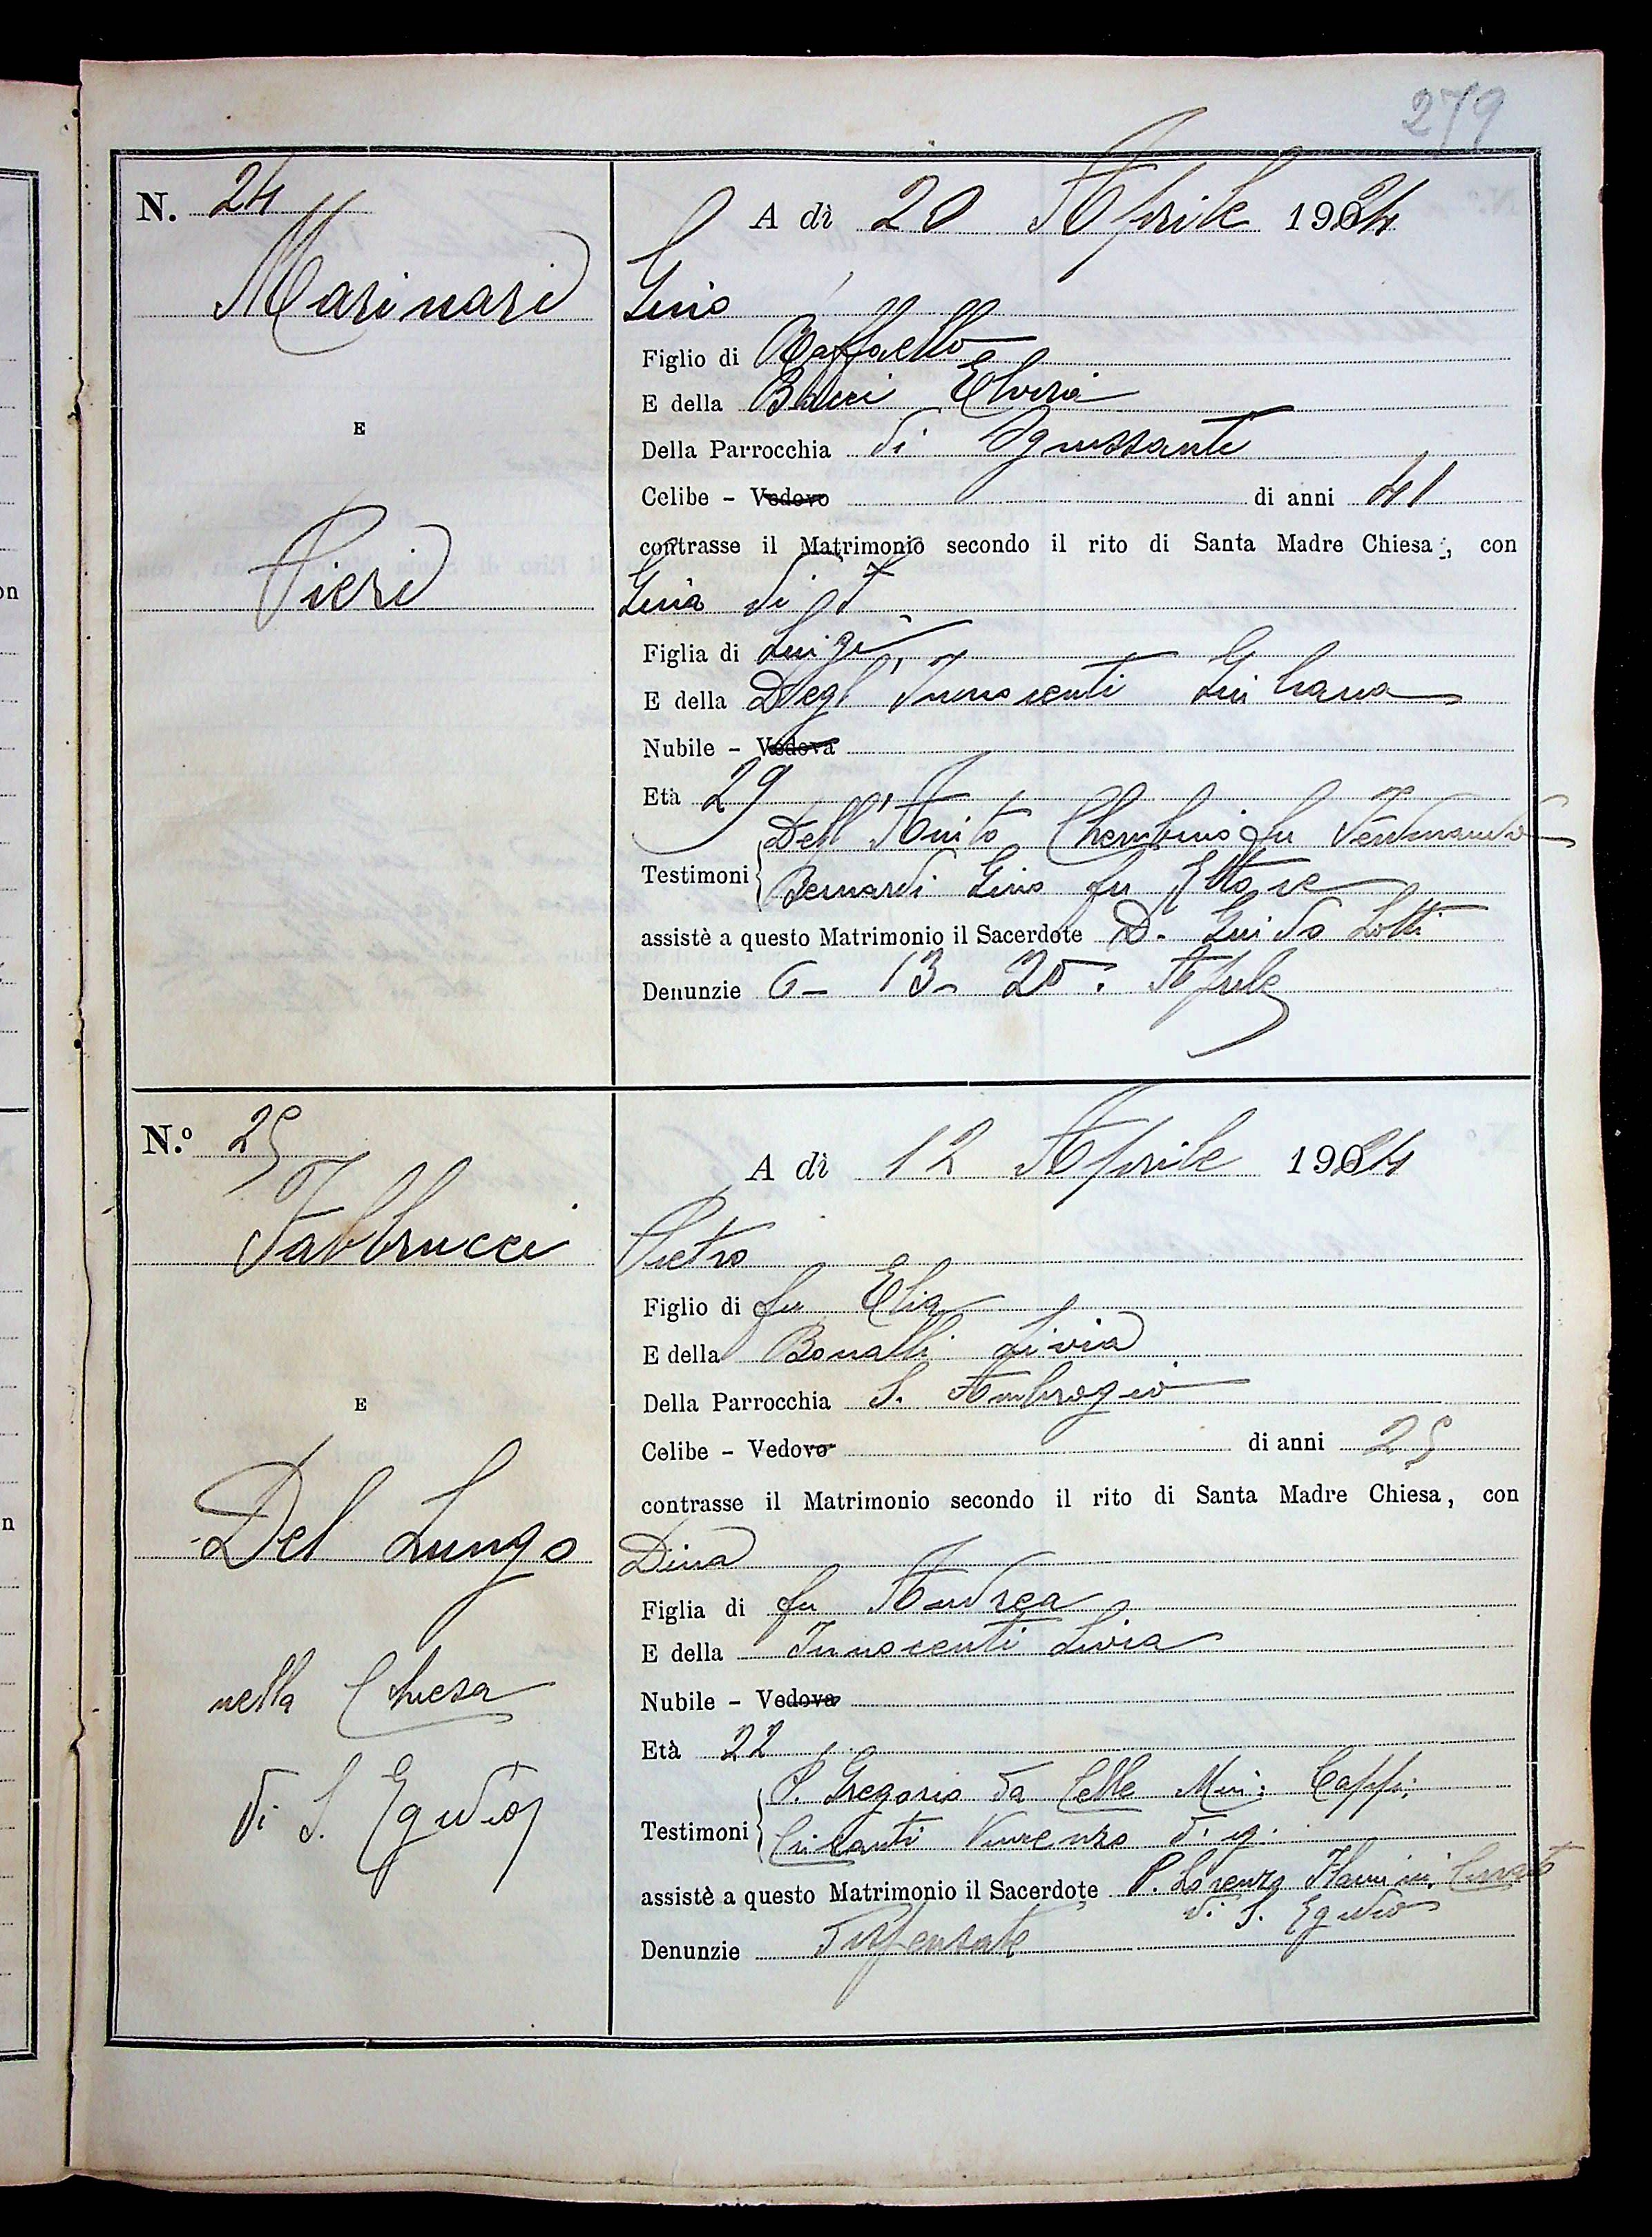 279
N. 24
A dì 20 Aprile 1924
Marinari
Gino
Figlio di Raffaello
E della Bacci Elvira
E
Della Parrocchia di Ognissanti
Celibe - Vedovo di anni 41
contrasse il Matrimonio secondo il rito di Santa Madre Chiesa, con
Pieri
Gina di
Figlia di Luigi
E della Degl'Innocenti Giuliana
Nubile - Vedova
Età 29
Dell'Amico Cherubino fu Ferdinando
Testimoni
Bernardi Gino fu Ettore
assistè a questo Matrimonio il Sacerdote D. Guido Lotti
Denunzie 6 - 13 - 20. Aprile
N.º 25
A dì 12 Aprile 1924
Fabbrucci
Pietro
Figlio di fu Elia
E della Livia
Della Parrocchia S. Ambrogio
E
Celibe - Vedovo di anni 25
contrasse il Matrimonio secondo il rito di Santa Madre Chiesa, con
Del Lungo
Dina
Figlia di fu Andrea
E della Innocenti Livia
nella Chiesa
Nubile - Vedova
Età 22
di S. Egidio
P. Gregorio da Celle Min: Capp:
Testimoni
Vincenzo
assistè a questo Matrimonio il Sacerdote P. Lorenzo Curato
di S. Egidio
Denunzie Dispensate
n